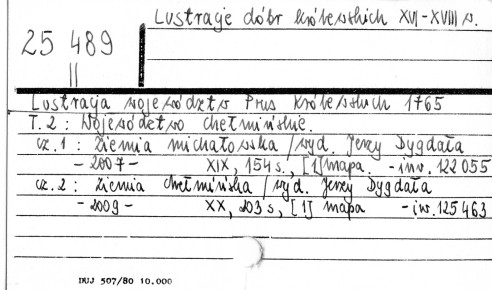 Lustracje dóbr królewskich XVI-XVIII w.
25 489
||
Lustracja województw Prus Królewskich 1765
T. 2 : Województwo chełmińskie.
cz. 1 : Ziemia michałowska / wyd. Jerzy Dygdała
- 2007 - XIX, 154 s., [1] mapa. - inw. 122 055
cz. 2 : Ziemia chełmińska / wyd. Jerzy Dygdała
- 2009 - XX, 203 s, [1] mapa - iw. 125 463
DUJ 507/80 10.000